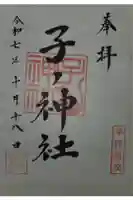 奉拝
子ノ神社
令和七年十月十八日